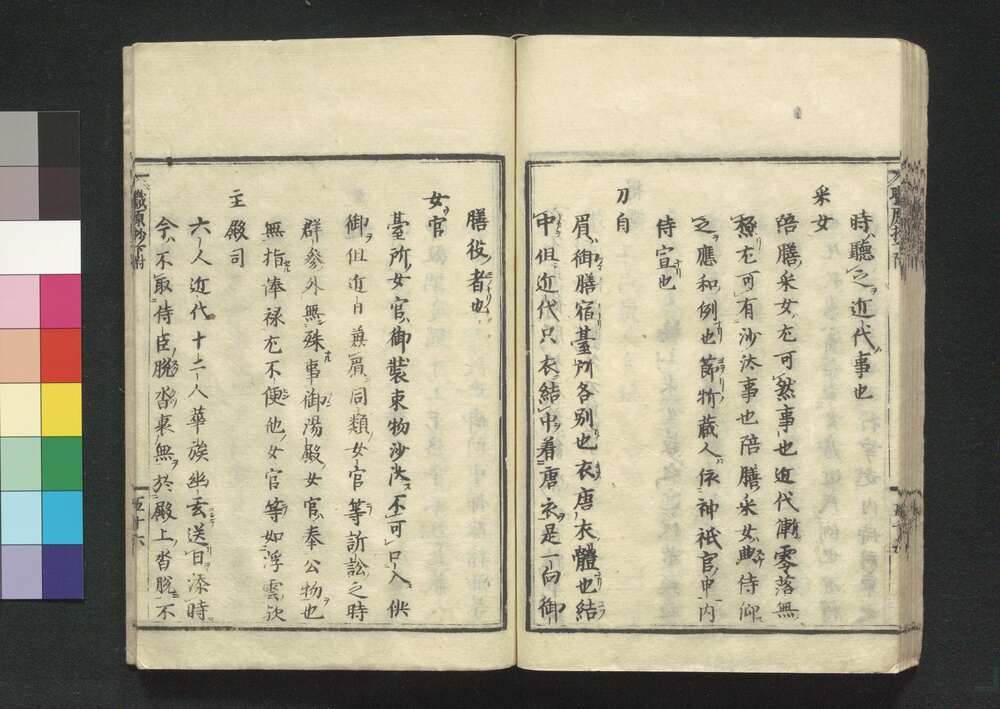 時聴之近代事也
采女
陪膳采女尤可然事也近代漸零落無
極尤可有沙汰事也陪膳采女典侍仰
之應和例也節折蔵人依神祇官中内
侍宣也
刀自
眉御膳宿臺所各別也衣唐衣體也結
中但近代只衣結中着唐衣是一向御
膳役者也
女官
臺所女官御裝束物沙汰不可口入供
御但近日無眉同類女官等訴訟之時
群參外無殊事御湯殿女官奉公物也
無指俸禄尤不便他女官等如浮雲歟
主殿司
六人近代十二人華族幽玄送日添時
今不取侍臣脱沓裹無於殿上沓脱不
職原抄下附
五十六